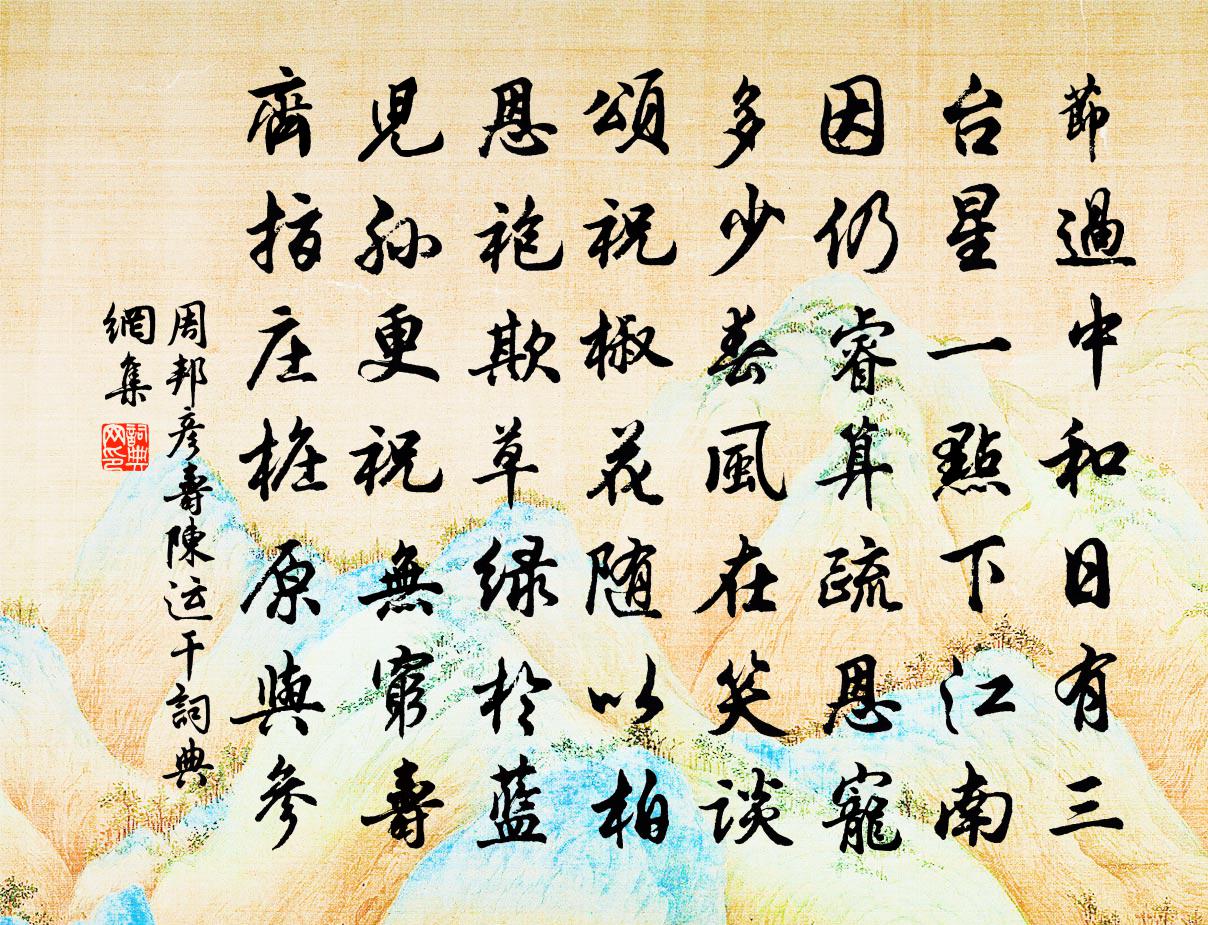 節過中和日有三
台星一點下江南
因仍睿算疏恩寵
多少春風在笑談
頌祝椒花随以柏
恩袍欺草緑於藍
児孫更祝無窮壽
齊指庄椿原與參
周邦彦壽陳运干詞典
網集
詞典
网印